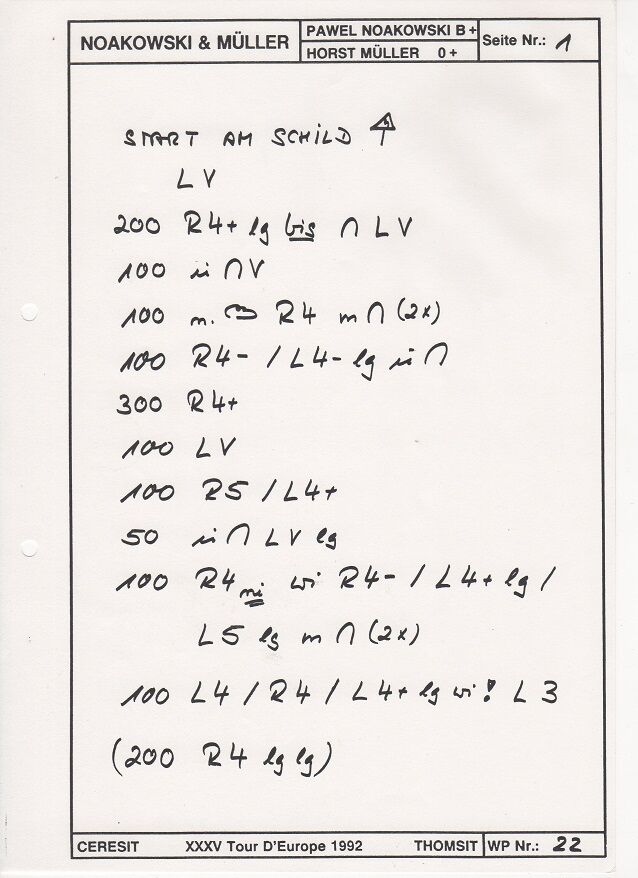 NOAKOWSKI & MÜLLER
PAWEL NOAKOWSKI B +
HORST MÜLLER 0 +
Seite Nr.: 1
START AM SCHILD
LV
200 R4+ lg bis ∩ LV
100 in ∩V
100 n. R4 m ∩ (2x)
100 R4- / L4- lg in ∩
300 R4+
100 LV
100 R5 / L4+
50 in ∩ LV lg
100 R4 ni wi R4- / L4+ lg /
L5 lg m ∩ (2x)
100 L4 / R4 / L4+ lg wi! L 3
(200 R4 lg lg)
CERESIT XXXV Tour D'Europe 1992 THOMSIT WP Nr.: 22